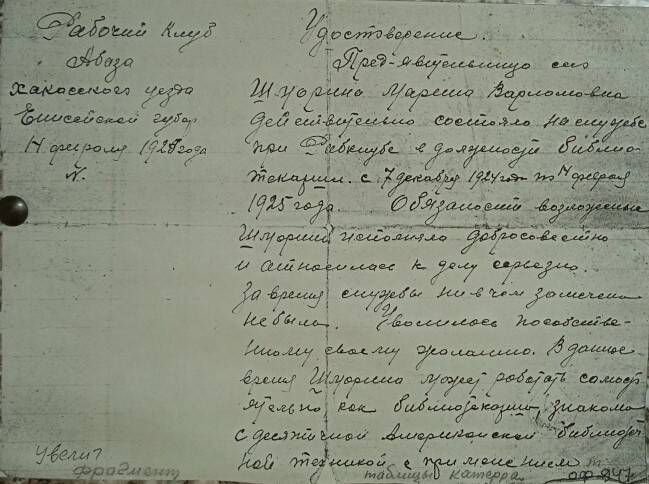 Рабочий клуб
Абаза
Хакасского уезда
Енисейской губер
14 февраля 1925 года
N.
Удостверение.
Пред-явительница сего
Шморина Мариша Варломовна
действительно состояла на службе
при Рабклубе в должности библио-
текарши. с 7 декабря 1924 год по 14 февраля
1925 года. Обязаности возложеные
Шморина исполняла добросовестно
и относилась к делу серьезно.
За время службы ни в чем замечена
не была. Уволилось по собстве-
нному своему желанию. В данное
время Шморина может работать самост
ятельно как библиотекарша, знакома
с десятичной Американской библиот
ной техникой с применением
таблицы Катерра.
увелич
фрагмент
оф 847